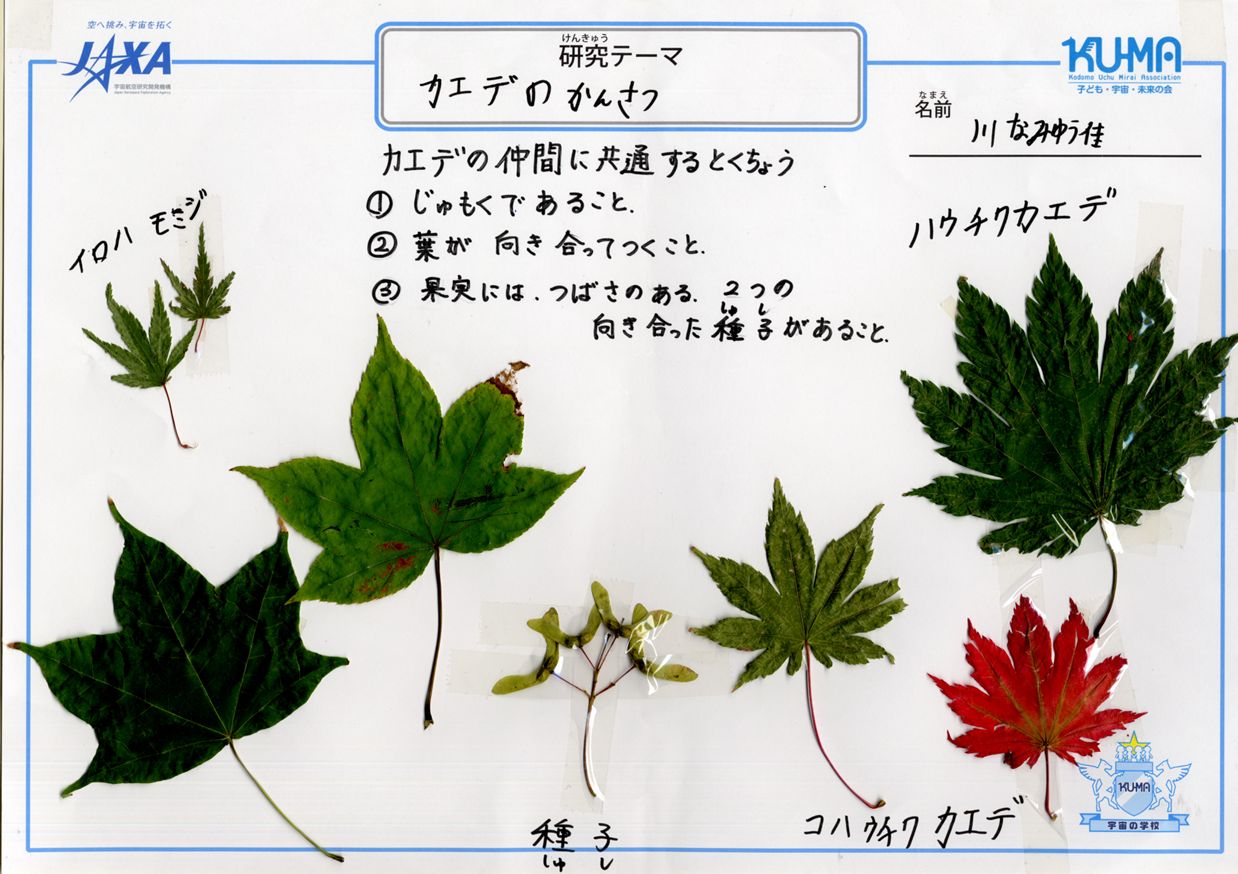 空へ挑み、宇宙を拓く
JAXA
宇宙航空研究開発機構
Japan Aerospace Exploration Agency
けんきゅう
研究テーマ
カエデの かんさつ
KU-MA
Kodomo Uchu Mirai Association
子ども・宇宙・未来の会
なまえ
名前
川 なみゆう佳
カエデの仲間に共通するとくちょう
① じゅもくであること.
② 葉が 向き合ってつくこと.
③ 果実には、つばさのある、2つの
しゅ し
向き合った種子があること.
イロハ モミジ
ハウチワカエデ
種子
しゅ し
コハウチワ カエデ
KU-MA
宇宙の学校